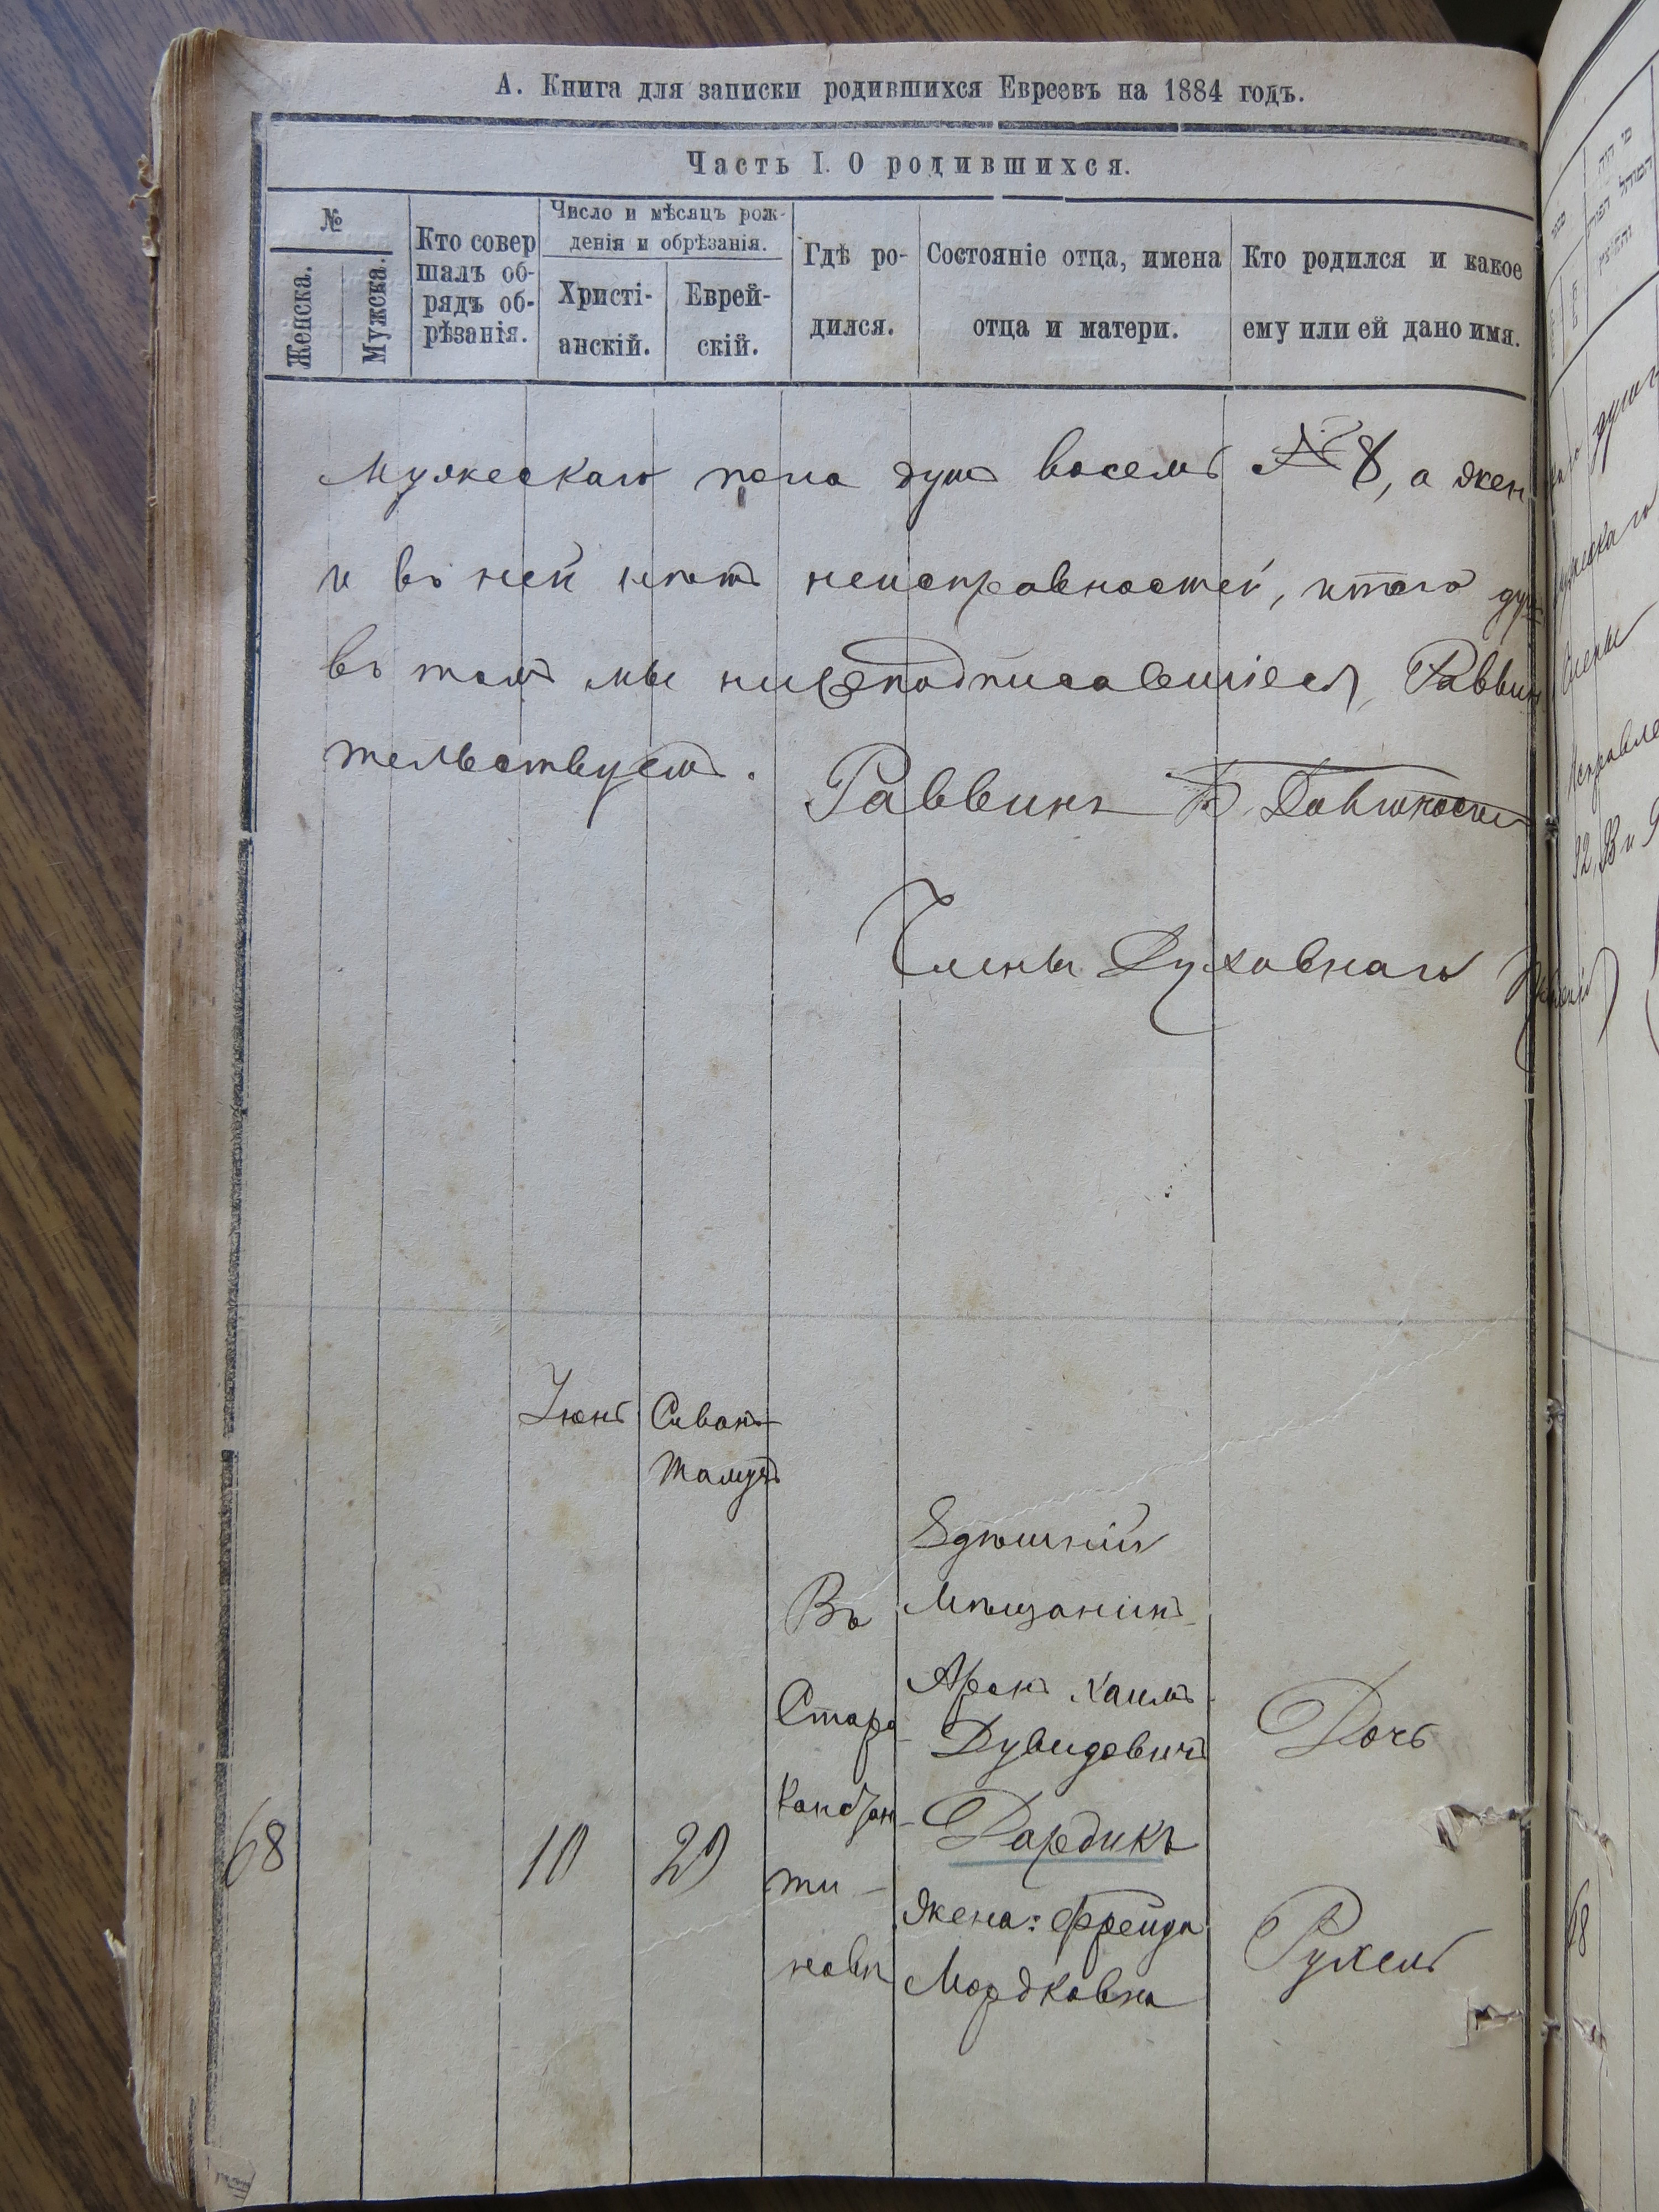 А. Книга для записки родившихся Евреевъ на 1884 годъ.
Часть I. О родившихся.
№
Женска.
Мужска.
Кто совер
шалъ об-
рядъ об-
рѣзанія.
Число и мѣсяцъ рож-
денія и обрѣзанія.
Христі-
анскій.
Еврей-
скій.
Гдѣ ро-
дился.
Состояніе отца, имена
отца и матери.
Кто родился и какое
ему или ей дано имя.
Мужескаго пола душъ восемь № 8, а жен
и въ ней нѣтъ неисправностей, итого
въ томъ мы нижеподписавшіеся, Раввин
тельствуемъ.
Раввинъ
Члены Духовнаго
Іюнь
Сиванъ
Тамузъ
68
10
29
Въ
Старо
констан-
ти-
новѣ
Здѣшній
Мѣщанинъ
Аронъ Хаимъ
Дувидовичъ
Дардикъ
жена: Фрейда
Мордковна
Дочь
Рухель
68